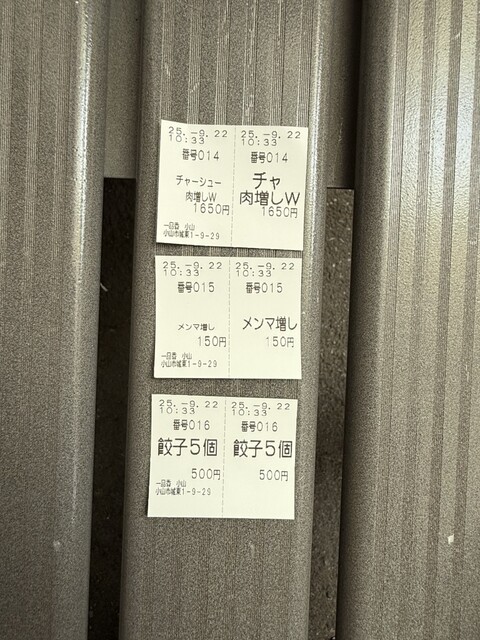 25.-9.22
10:33
番号014
チャーシュー
肉増しW
1650円
一品香 小山
小山市城東1-9-29
25.-9.22
10:33
番号014
チャ
肉増しW
1650円
25.-9.22
10:33
番号015
メンマ増し
150円
一品香 小山
小山市城東1-9-29
25.-9.22
10:33
番号015
メンマ増し
150円
25.-9.22
10:33
番号016
餃子5個
500円
一品香 小山
小山市城東1-9-29
25.-9.22
10:33
番号016
餃子5個
500円